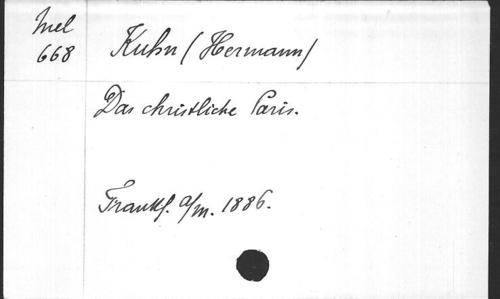 Mel
668
Kuhn (Hermann)
Das christliche Paris.
Frankf. a/m. 1886.